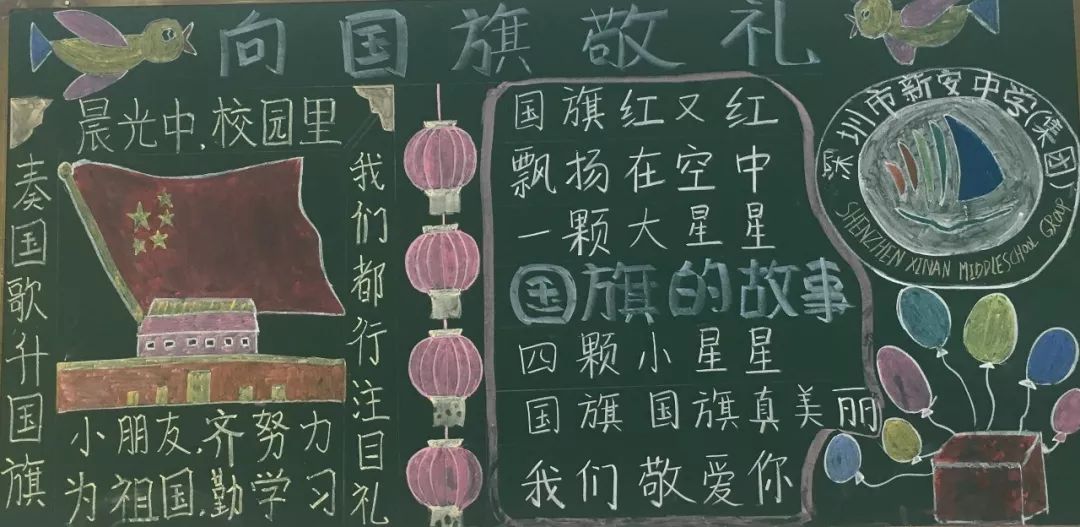 向国旗敬礼
晨光中,校园里
奏国歌升国旗
我们都行注目礼
小朋友,齐努力
为祖国,勤学习
国旗红又红
飘扬在空中
一颗大星星
国旗的故事
四颗小星星
国旗国旗真美丽
我们敬爱你
深圳市新安中学(集团)
SHENZHEN XINAN MIDDLESCHOOL GROUP